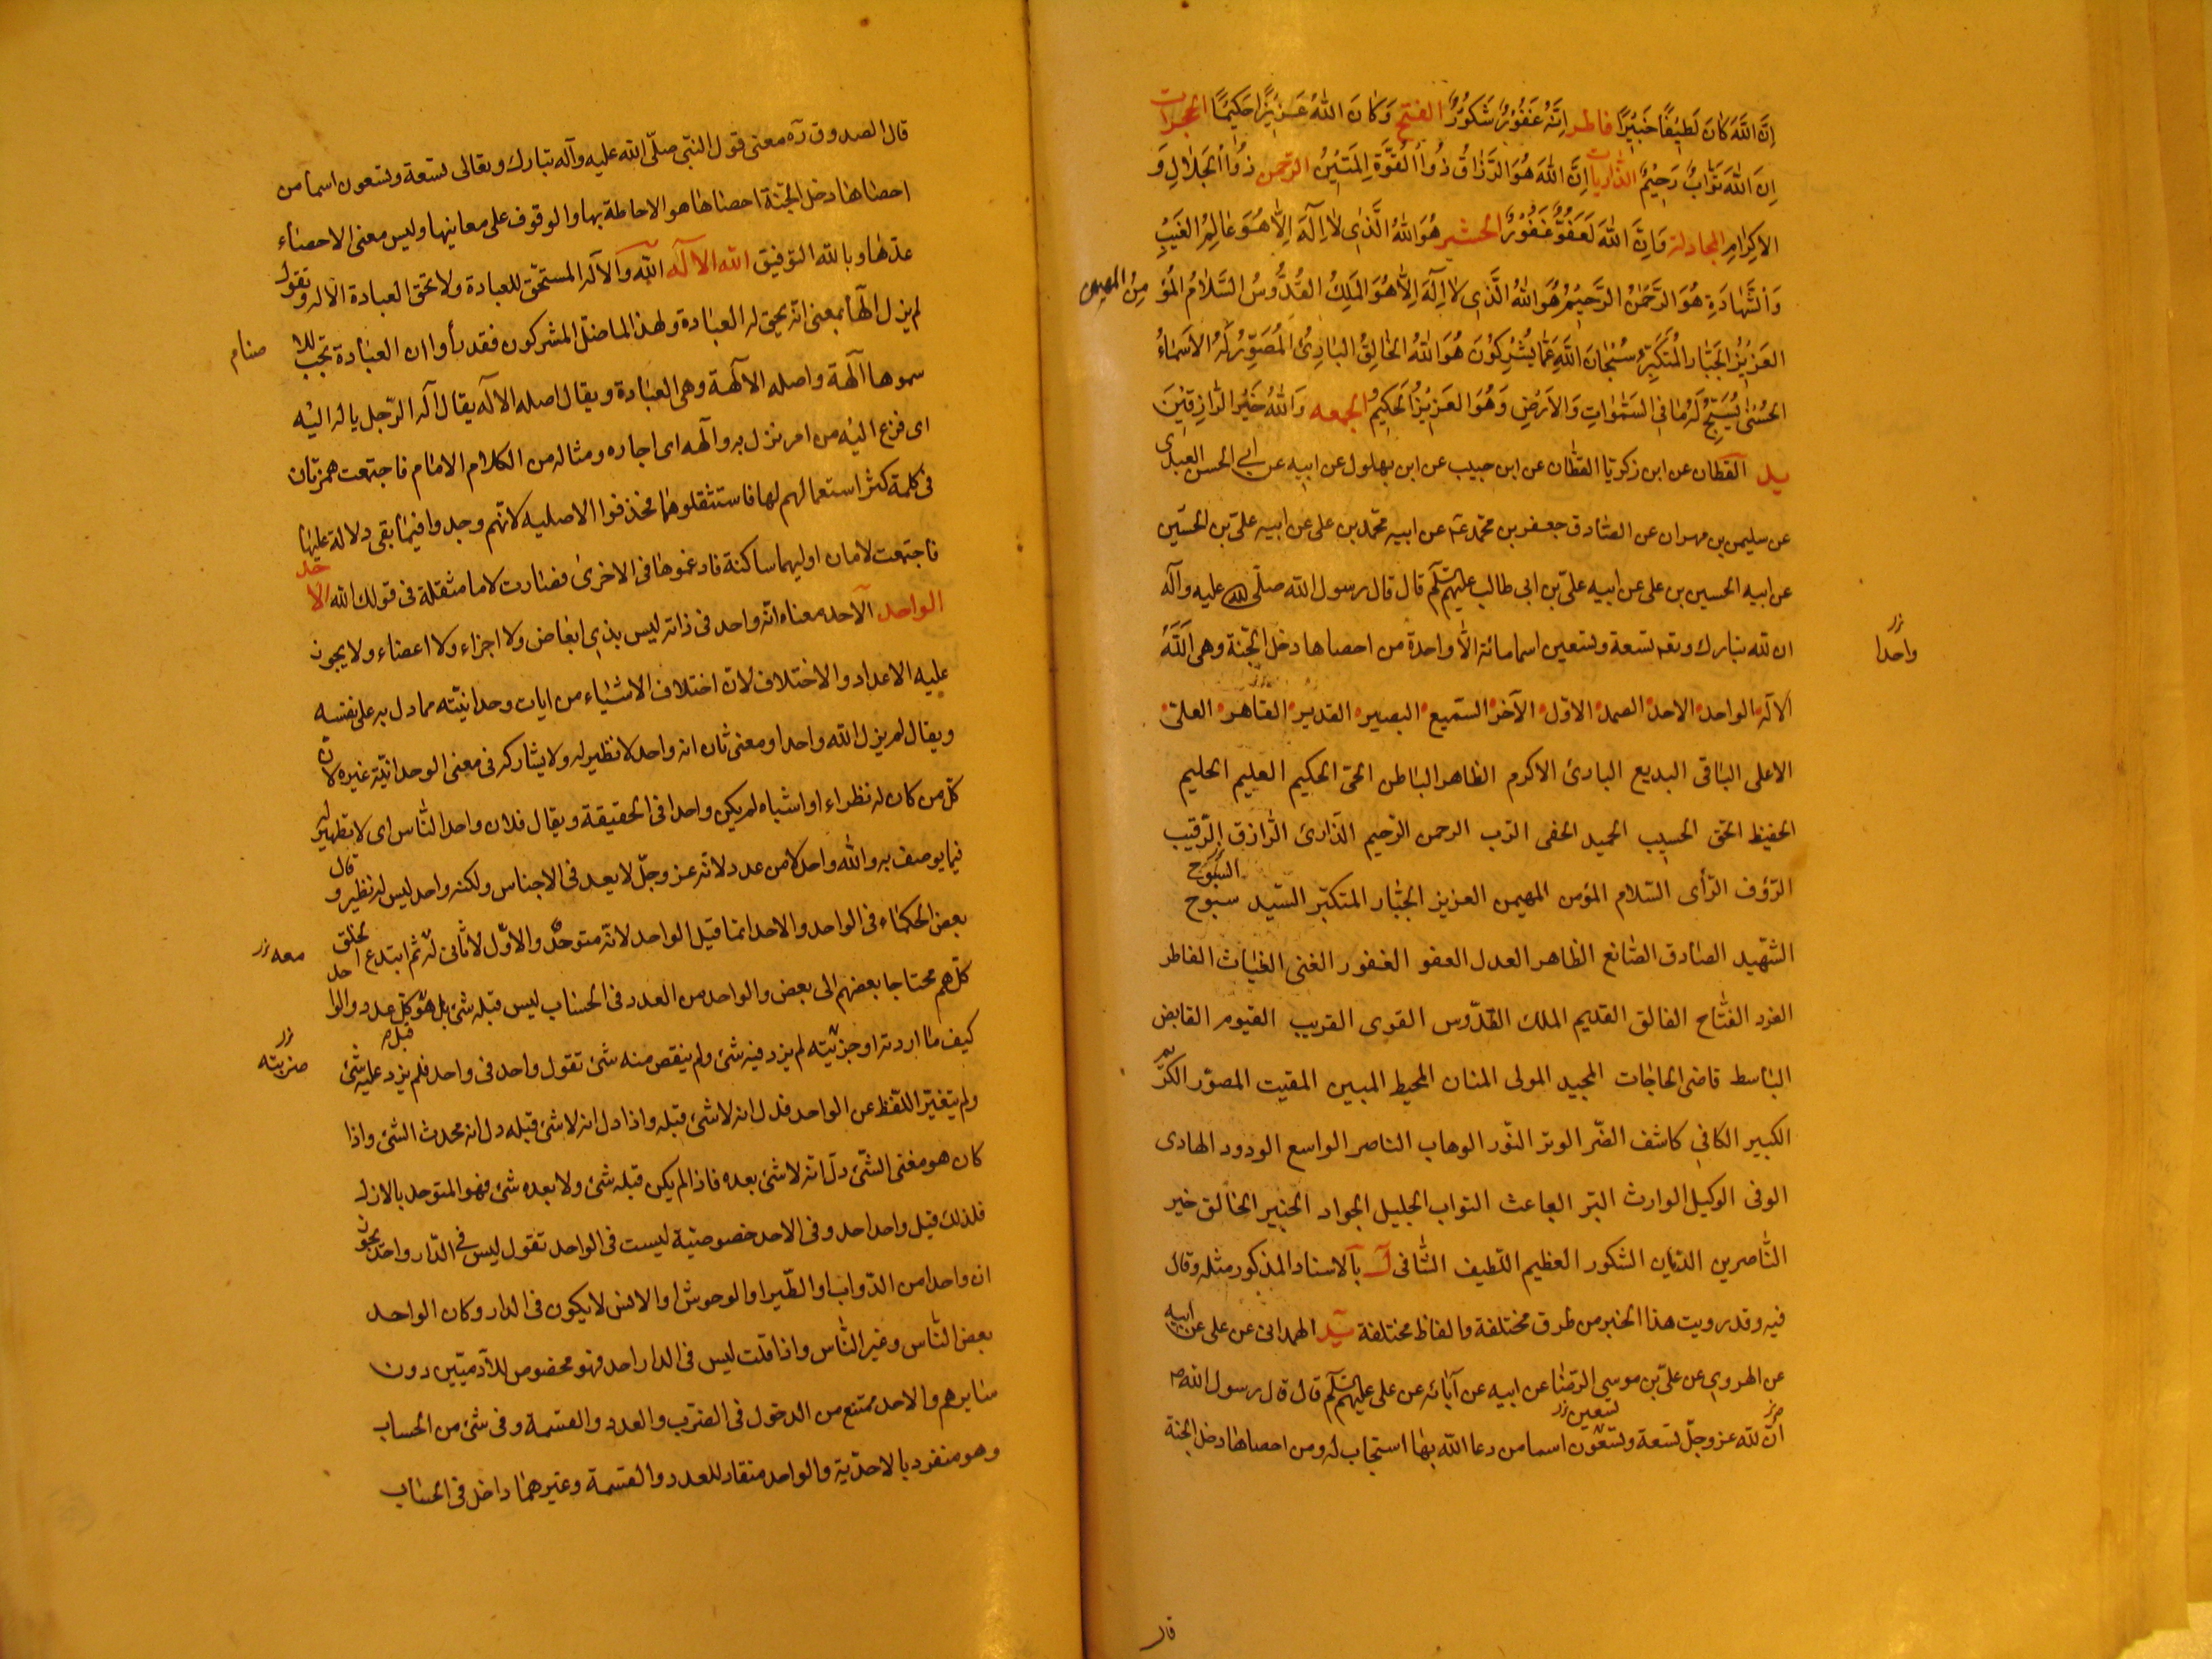 اِنَّ اللهَ كانَ لَطيفًا خَبيرًا فاطر اِنَّهُ غَفُورٌ شَكُورٌ الفتح وَكانَ اللهُ عَزيزًا حَكيمًا الحجرات
اِنَّ اللهَ تَوّابٌ رَحيمٌ الذاريات اِنَّ اللهَ هُوَ الرَّزّاقُ ذُو القُوَّةِ المَتينُ الرحمن ذُو الجَلالِ وَ
الاِكرامِ المجادلة وَاِنَّ اللهَ لَعَفُوٌّ غَفُورٌ الحشر هُوَ اللهُ الَّذي لا اِلهَ اِلّا هُوَ عالِمُ الغَيبِ
وَالشَّهادَةِ هُوَ الرَّحمنُ الرَّحيمُ هُوَ اللهُ الَّذي لا اِلهَ اِلّا هُوَ المَلِكُ القُدُّوسُ السَّلامُ المُؤ مِنُ المهيمن
العَزيزُ الجَبّارُ المُتَكَبِّرُ سُبحانَ اللهِ عَمّا يُشرِكُونَ هُوَ اللهُ الخالِقُ البارِئُ المُصَوِّرُ لَهُ الاَسماءُ
الحُسنى يُسَبِّحُ لَهُ ما فِي السَّمواتِ وَالاَرضِ وَهُوَ العَزيزُ الحَكيمُ الجمعه وَاللهُ خَيرُ الرّازِقينَ
يد القطان عن ابن زكريا القطان عن ابن حبيب عن ابن بهلول عن ابيه عن ابي الحسن العبدى
عن سليمن بن مهران عن الصادق جعفر بن محمد عن ابيه محمد بن على عن ابيه علىّ بن الحسين
عن ابيه الحسين بن على عن ابيه علىّ بن ابى طالب عليهم السلم قال قال رسول الله صلّى الله عليه وآله
ان لله تبارك وتعـ تسعة وتسعين اسما مائة الّا واحدة من احصاها دخل الجنّة وهى اللهُ
واحدا
الاله الواحد الاحد الصمد الاول الآخر السّميع البصير القدير القاهر العلىّ
الاعلى الباقى البديع البارئ الاكرم الظاهر الباطن الحىّ الحكيم العليم الحليم
الحفيظ الحق الحسيب الحميد الحفى الرّب الرحمن الرّحيم الذّارئ الرّازق الرّقيب
الرّؤف الرّأى السّلام المؤمن المهيمن العزيز الجبّار المتكبّر السّيد سبوح السبّوح
الشّهيد الصّادق الصّانع الظاهر العدل العفو الغفور الغنى الغياث الفاطر
الفرد الفتّاح الفالق القديم الملك القدّوس القوى القريب القيوم القابض
الباسط قاضى الحاجات المجيد المولى المنان المحيط المبين المقيت المصوّر الكريم
الكبير الكافى كاشف الضّر الوتر النّور الوهاب الناصر الواسع الودود الهادى
الوفى الوكيل الوارث البّر الباعث التواب الجليل الجواد الخبير الخالق خير
النّاصرين الديّان الشكور العظيم اللّطيف الشّافى ل بالاسناد المذكور مثله وقال
فيه وقد رويت هذا الخبر من طرق مختلفة والفاظ مختلفة يد الهمدانى عن على عن ابيه
عن الهروى عن علىّ بن موسى الرّضا عن ابيه عن آبائه عن على عليهم السلم قال قال رسول الله ص
انّ لله عز وجلّ تسعة وتسعون اسما من دعا الله بها استجاب له ومن احصاها دخل الجنة
تسعين
قال
قال الصدوق ره معنى قول النبّى صلّى الله عليه وآله تبارك وتعالى تسعة وتسعون اسما من
احصاها دخل الجنّة احصاها هو الاحاطة بها والوقوف على معانيها وليس معنى الاحصاء
عدّها وبالله التوفيق الله الاله الله والاله المستحق للعبادة ولا تحق العبادة الا له وتقول
لم يزل الهاً بمعنى انّه يحق له العبادة ولهذا لما ضلّ المشركون فقدرأوا ان العبادة تجب للا صنام
سموها الهة واصله الالهة وهى العبادة ويقال اصله الاله يقال اله الرّجل ياله اليه
اى فزع اليه من امر نزل به والهه اى اجاره ومثاله من الكلام الامام فاجتمعت همزتان
فى كلمة كثر استعمالهم لها فاستثقلوهما فحذفوا الاصليه لانّهم وجدوا فيما بقى دلالة عليها
فاجتمعت لامان اوليهما ساكنة فادغموها فى الاخرى فصارت لاما مثقلة فى قولك الله الاحد
الواحد الاحد معناه انّه واحد فى ذاته ليس بذى ابعاض ولا اجزاء ولا اعضاء ولا يجوز
عليه الاعداد والاختلاف لانّ اختلاف الاشياء من ايات وحدانيّته مما دل به على نفسه
ويقال لم يزل الله واحدا ومعنى ثان انه واحد لا نظير له ولا يشاركه فى معنى الوحدانيّة غيره لانّ
كلّ من كان له نظراء او اشباه لم يكن واحدا فى الحقيقة ويقال فلان واحد النّاس اى لا نظير له
فيما يوصف به والله واحد لا من عدد لانّه عز وجلّ لا يعد فى الاجناس ولكنه واحد ليس له نظير وقال
بعض الحكماء فى الواحد والاحد انما قيل الواحد لانّه متوحّد والاوّل لا ثانى له ثم ابتدع الخلق
معه
كلّهم محتاجا بعضهم الى بعض والواحد من العدد فى الحساب ليس قبله شئ بل هو قبل كلّ عدد والواحد
كيف ما اردته او جزئيّته لم يزد فيه شئ ولم ينقص منه شئ تقول واحد فى واحد فلم يزد عليه شئ
ضربته
ولم يتغيّر اللّفظ عن الواحد فدل انه لا شئ قبله واذا دل انه لا شئ قبله دل انه محدث الشّئ واذا
كان هو مفنى الشّئ دلّ انّه لا شئ بعده فاذا لم يكن قبله شئ ولا بعده شئ فهو المتوحد بالازل
فلذلك قيل واحد احد وفى الاحد خصوصيّة ليست فى الواحد تقول ليس فى الدّار واحد يجوز
ان واحدا من الدّواب او الطّير او الوحوش او الانس لا يكون فى الدار وكان الواحد
بعض النّاس وغير النّاس واذا قلت ليس فى الدار احد فهو مخصوص للآدميّين دون
سايرهم والاحد ممتنع من الدخول فى الضّرب والعدد والقسمة وفى شئ من الحساب
وهو منفرد بالاحديّة والواحد منقاد للعدد والقسمة وغيرهما داخل فى الحساب